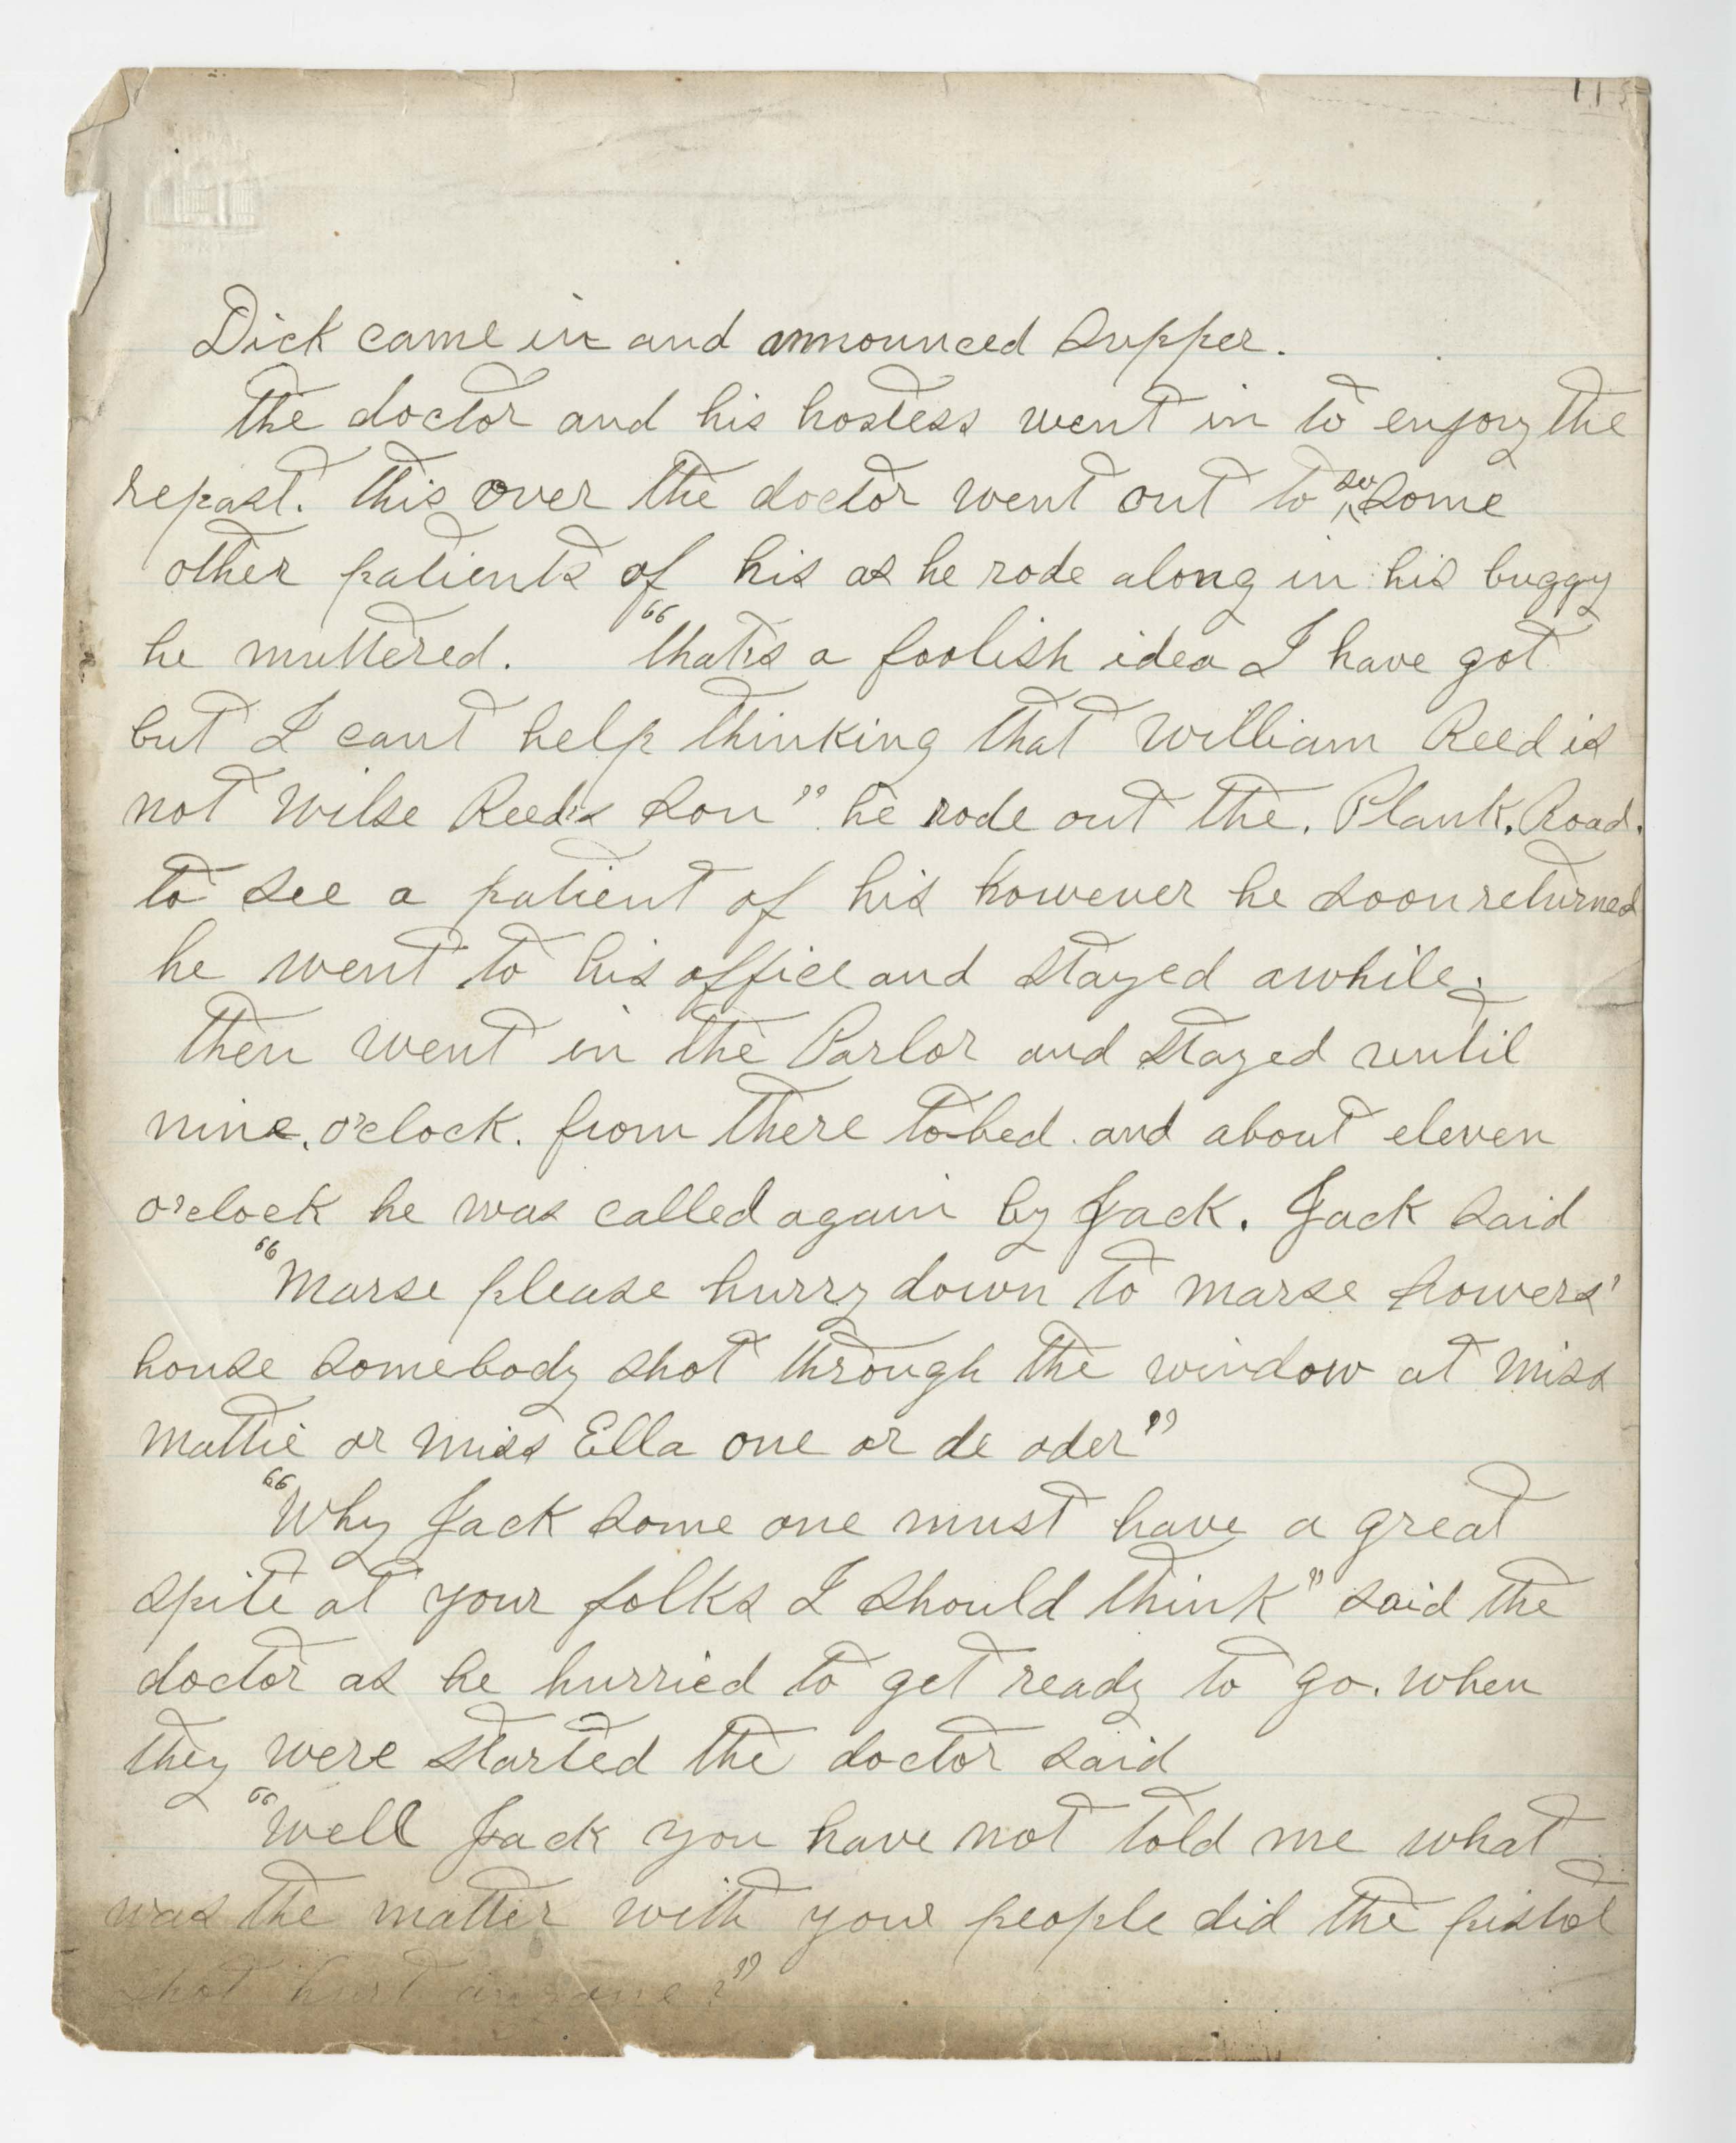 115
Dick came in and announced Supper.
the doctor and his hostess went in to enjoy the
repast. this over the doctor went out to see some
other patients of his as he rode along in his buggy
he muttered. "that's a foolish idea I have got
but I cant help thinking that William Reed is
not Wilse Reed's son" he rode out the. Plank. Road.
to see a patient of his however he soon returned
he went to his office and stayed awhile.
then went in the Parlor and stayed until
nine, o'clock. from there to bed. and about eleven
o'clock he was called again by Jack. Jack said
"Marse please hurry down to marse howers'
house somebody shot through the window at miss
mattie or miss Ella one or de oder"
"Why Jack some one must have a great
spite at your folks I should think" said the
doctor as he hurried to get ready to go. when
they were started the doctor said
"Well Jack you have not told me what
was the matter with your people did the pistol
shot hurt anyone?"